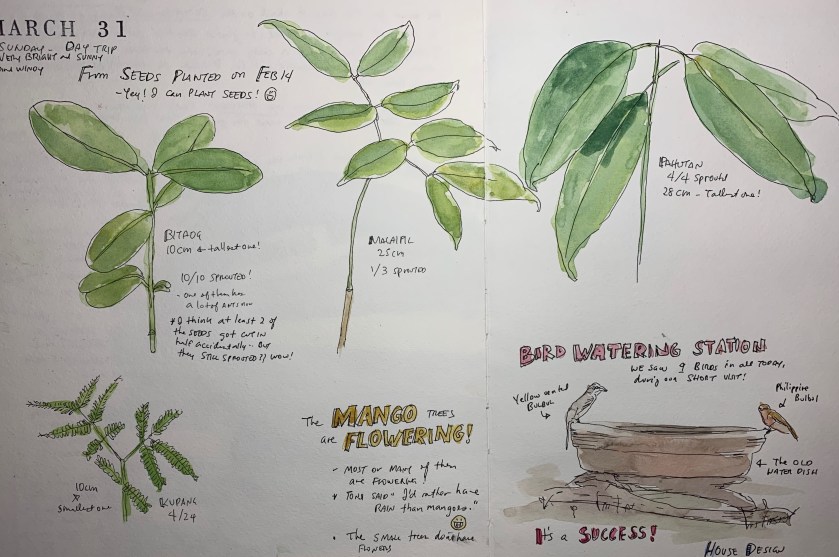 MARCH 31
SUNDAY - DAY TRIP
VERY BRIGHT and SUNNY
and WINDY
From SEEDS PLANTED on FEB 14
- Yay! I can PLANT SEEDS!
BITAOG
10cm tallest one!
10/10 SPROUTED!
- one of them has
a lot of
* I think at least 2 of
the SEEDS got CUT IN
half accidentally - But
they STILL SPROUTED?? WOW!
MALAIPIL
25cm
1/3 sprouted
PAHUTAN
4/4 sprouted
28 cm - Tallest one!
10cm
smallest one
KUPANG
4/24
The MANGO TREES
are FLOWERING!
- MOST or MANY of them
are FLOWERING!
* TONY SAID "I'd rather have
RAIN than mangoes."
• The SMALL trees don't have
FLOWERS
BIRD WATERING STATION
WE SAW 9 BIRDS in all TODAY,
during our SHORT VISIT!
Yellow vented
BULBUL
Philippine
Bulbul
The OLD
WATER DISH
It's a SUCCESS!
HOUSE DESIGN